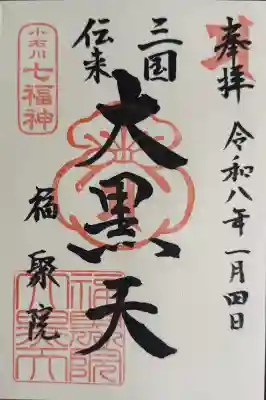 奉拝
令和八年一月四日
三国
伝来
大黒天
福聚院
小石川
七福神